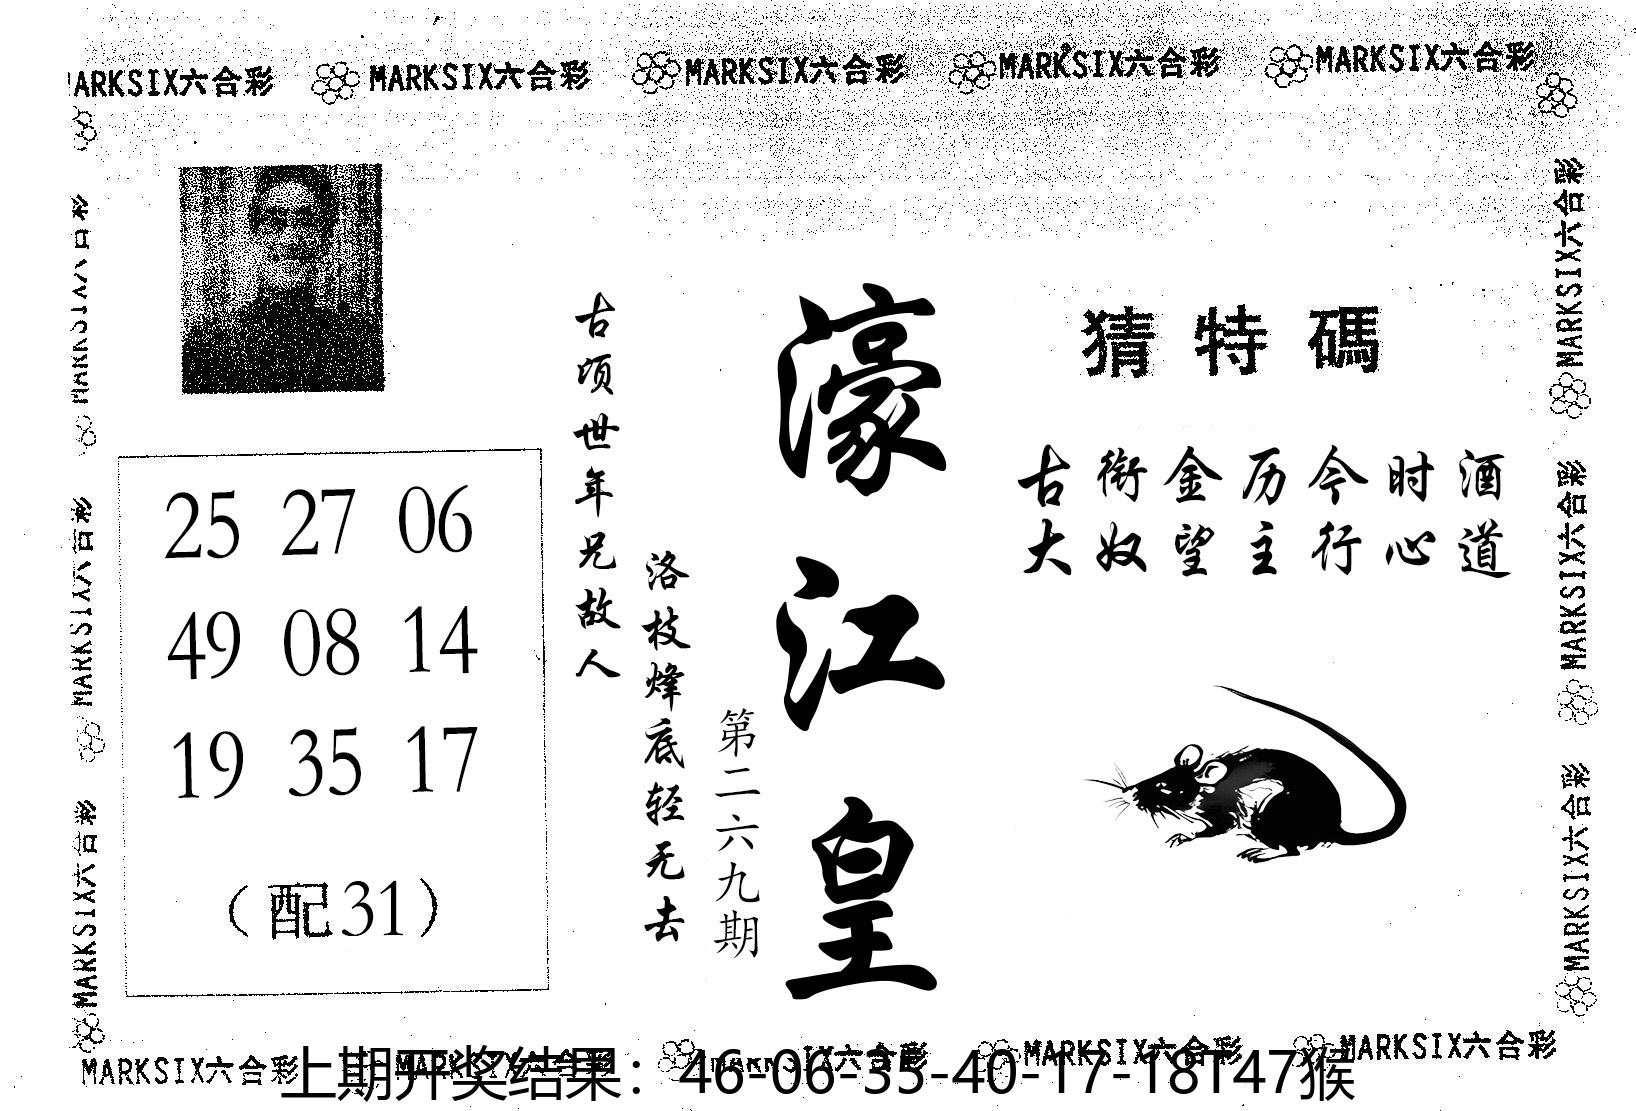 MARKSIX六合彩 MARKSIX六合彩 MARKSIX六合彩 MARKSIX六合彩 MARKSIX六合彩
猜特碼
古衔金历今时酒
大奴望主行心道
濠江皇
第二六九期
古顷世年兄故人
洛枝烽底轻无去
25 27 06
49 08 14
19 35 17
（配31）
MARKSIX六合彩
MARKSIX六合彩
MARKSIX六合彩
MARKSIX六合彩
MARKSIX六合彩
MARKSIX六合彩
MARKSIX六合彩 MARKSIX六合彩 MARKSIX六合彩 MARKSIX六合彩 MARKSIX六合彩
上期开奖结果：46-06-35-40-17-18T47猴